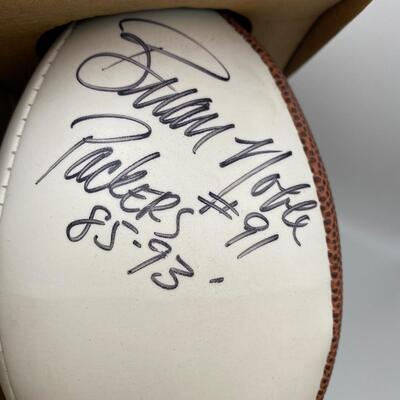 Brian Noble
Packers #91
85-93